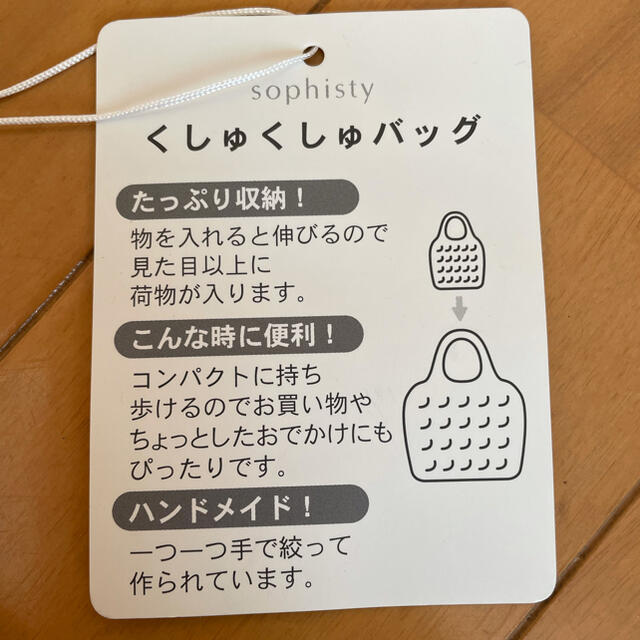 sophisty
くしゅくしゅバッグ
たっぷり収納！
物を入れると伸びるので
見た目以上に
荷物が入ります。
こんな時に便利！
コンパクトに持ち
歩けるのでお買い物や
ちょっとしたおでかけにも
ぴったりです。
ハンドメイド！
一つ一つ手で絞って
作られています。